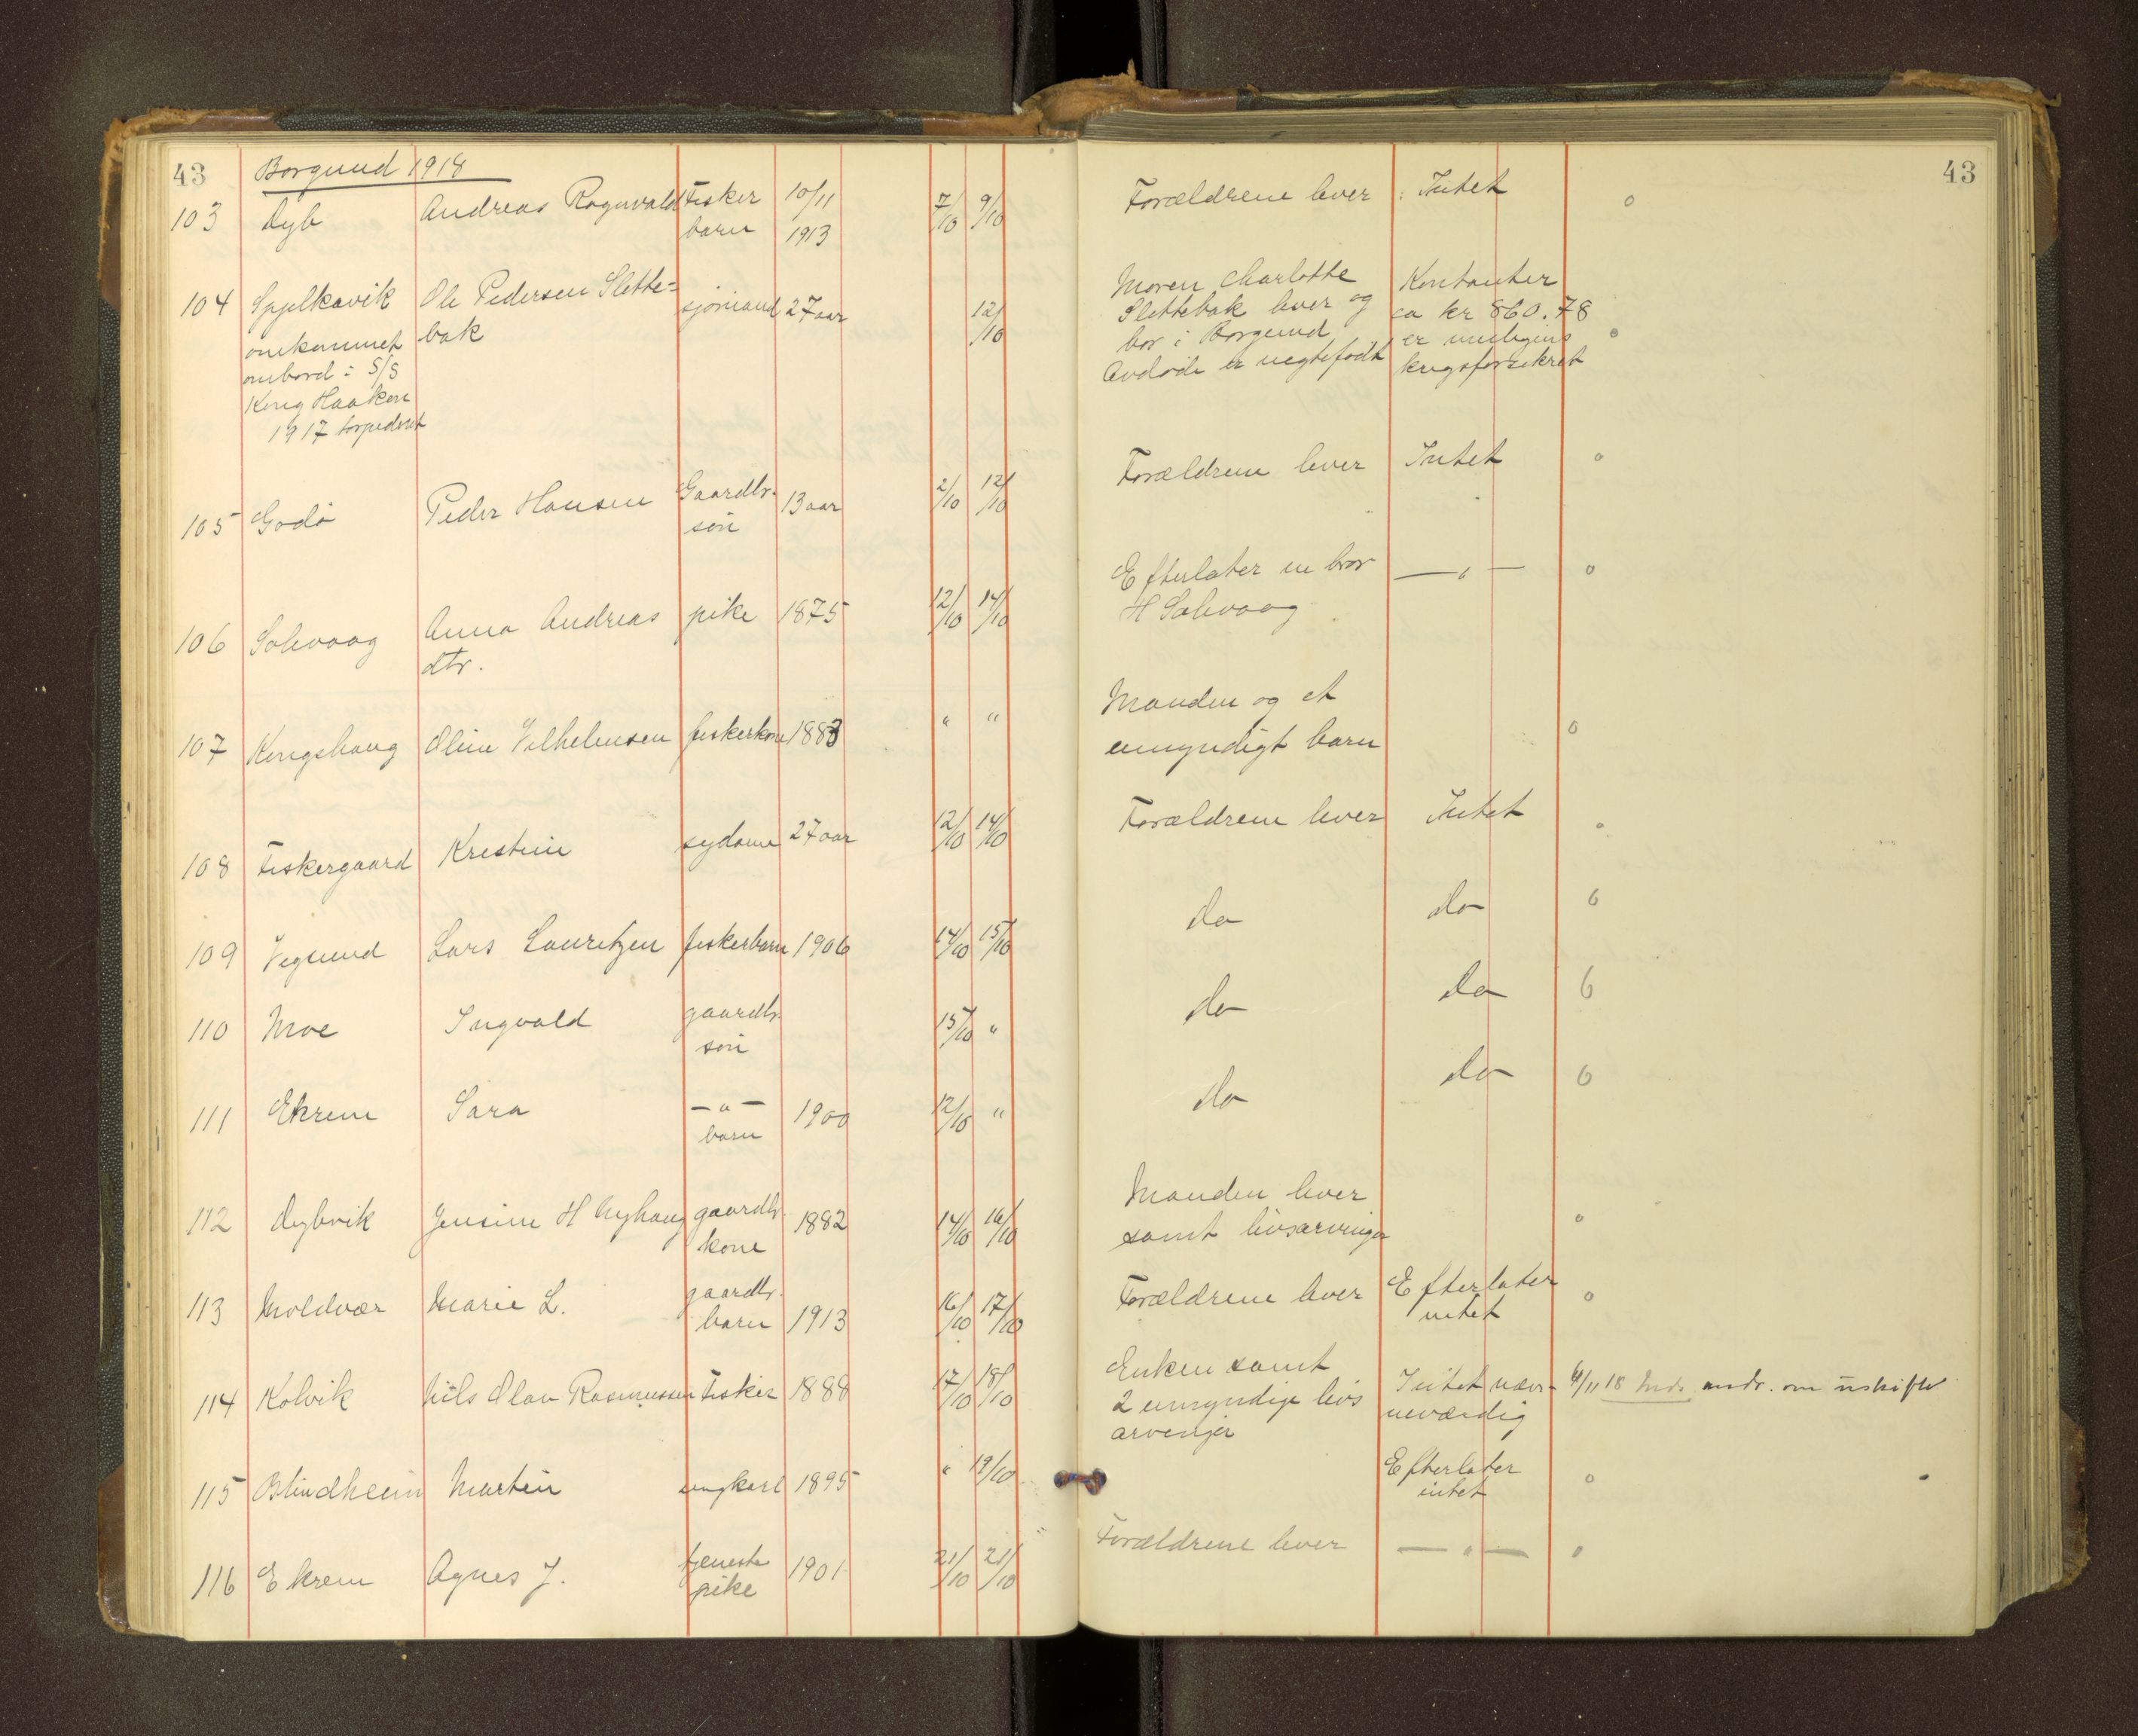 43
Borgund 1918
43
103 Dyb Andreas Ragnvald Fisker 10/11 7/10 9/10 Forældrene lever Intet o
barn 1913
104 Spjelkavik Ole Pedersen Slette= sjømand 27 aar 12/10 Moren Charlotte Kontanter
omkommet bak Slettebak lever og ca kr 860.78
ombord i S/S bor i Borgund er muligens o
Kong Haakon Avdøde er uegtefødt krigsforsikret
1917 torpedert
105 Godø Peder Hansen Gaardbr. 13 aar 2/10 12/10 Forældrene lever Intet o
søn
106 Solevaag Anna Andreas pike 1875 12/10 14/10 Efterlater en bror — " — o
dtr. H Solevaag
107 Kongshaug Oline Vilhelmsen fiskerkone 1883 " " Manden og et
umyndigt barn o
108 Fiskergaard Kristine sydame 27 aar 12/10 14/10 Forældrene lever Intet o
109 Vegsund Lars Lauritzen fiskerbarn 1906 14/10 15/10 do do o
110 Moe Ingvald gaardbr. 15/10 " do do o
søn
111 Ekrem Sara — " — 1900 12/10 " do do o
barn
112 Dybvik Jensine H Nyhaug gaardbr. 1882 14/10 16/10 Manden lever
kone samt livsarvinger o
113 Moldvær Marie L. gaardbr. 1913 16/10 17/10 Forældrene lever Efterlater o
barn intet
114 Kolvik Nils Olav Rasmussen Fisker 1888 17/10 18/10 Enken samt Intet næv- 4/11 18 andr. om uskifte
2 umyndige livs neværdig
arvenger
115 Blindheim Martin ungkarl 1895 " 19/10 Efterlater o
intet
116 Ekrem Agnes J. tjeneste 1901 21/10 21/10 Forældrene lever — " — o
pike